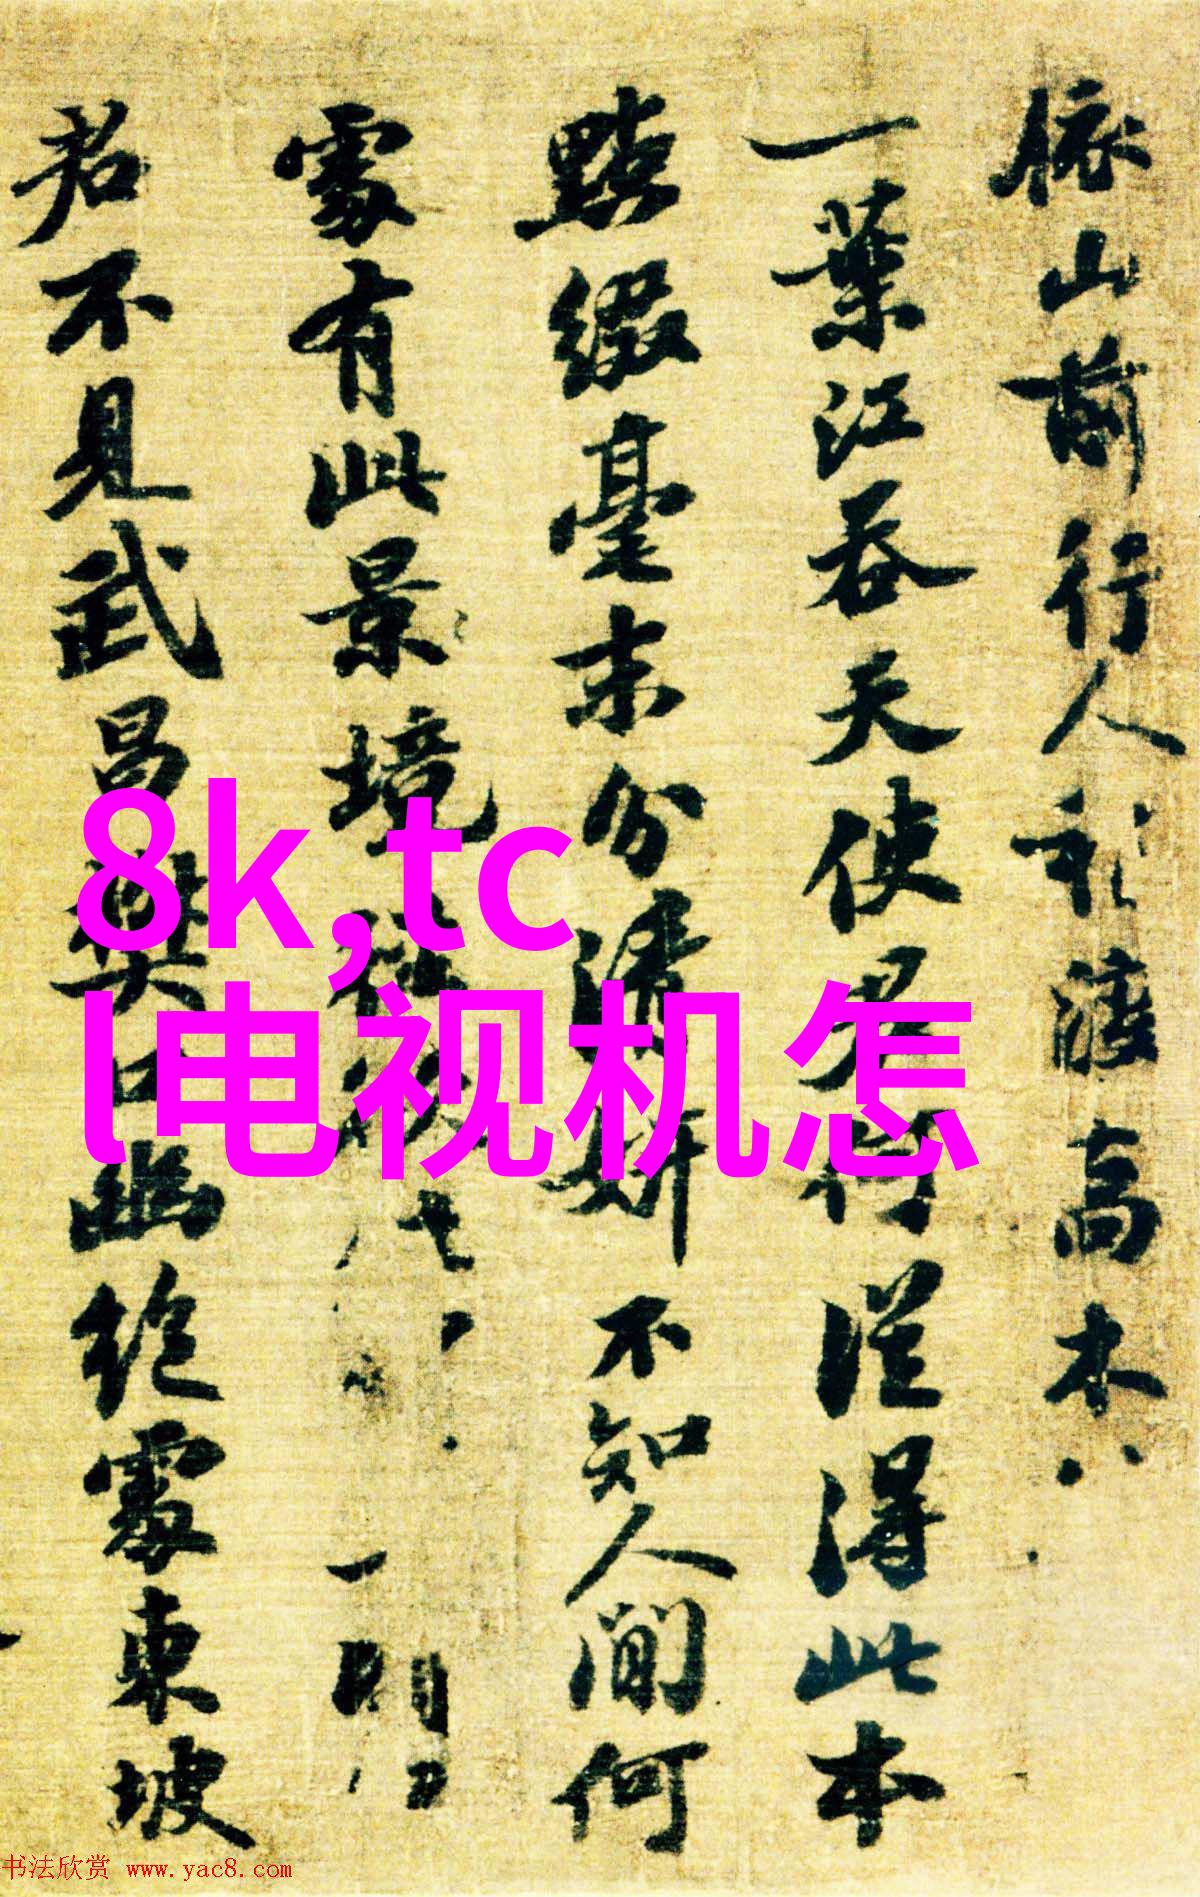 依山前行人稍渡高木
一葉江吞天使君何從得此本
點綴毫末分清妍不知人間何
處有此景境
君不見武昌樊口幽絕處東坡
8k,tc
l电视机怎
书法欣赏 www.yac8.com